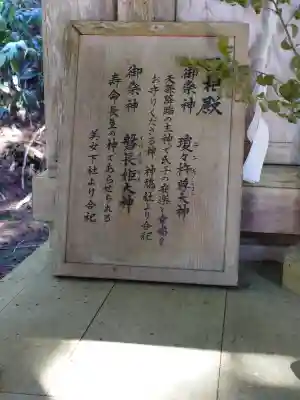 社殿
御祭神 瓊々杵尊大神
天孫降臨の主神で氏子の安楽と
お守りくださる神 神穂社より合祀
御祭神 磐長姫大神
寿命長生の神であらせられる
美女下社より合祀